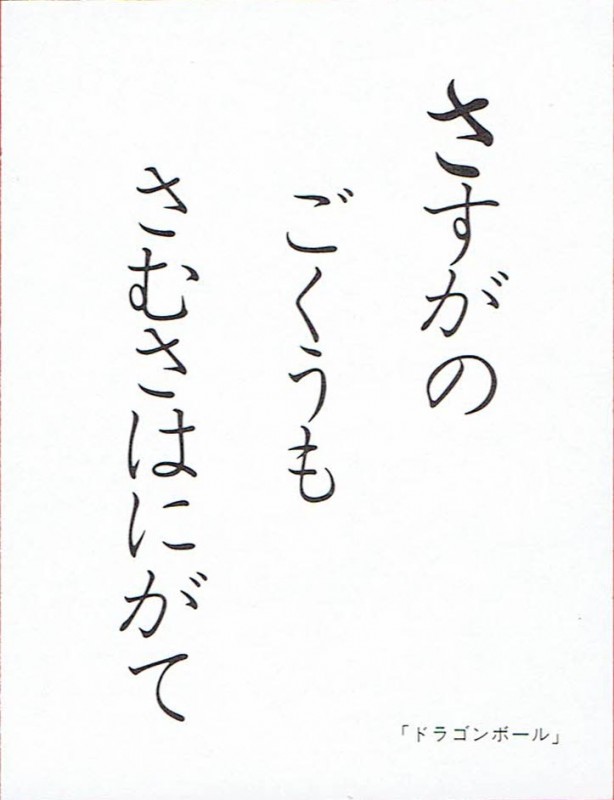 さすがの
ごくうも
さむさはにがて
「ドラゴンボール」